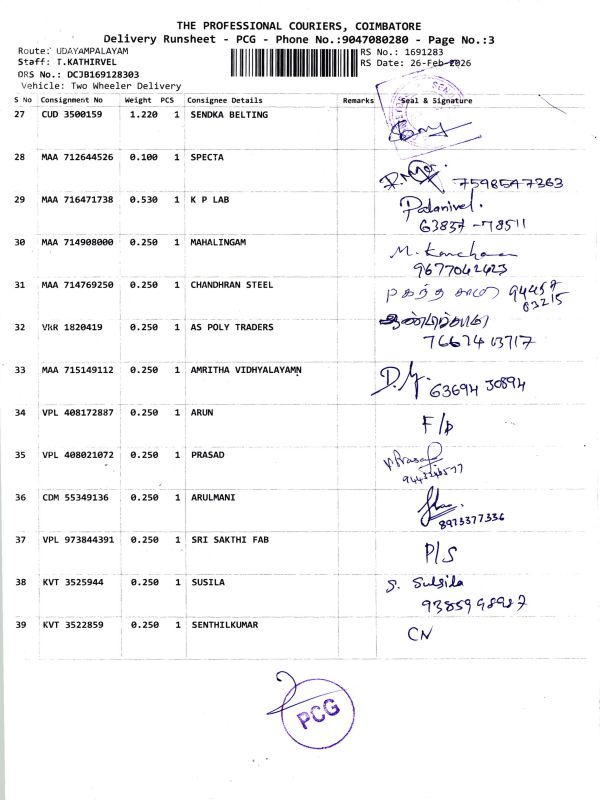 THE PROFESSIONAL COURIERS, COIMBATORE
Delivery Runsheet - PCG - Phone No.:9047080280 - Page No.:3
Route: UDAYAMPALAYAM
RS No.: 1691283
Staff: T.KATHIRVEL
RS Date: 26-Feb-2026
DRS No.: DCJB169128303
Vehicle: Two Wheeler Delivery
S No Consignment No Weight PCS Consignee Details Remarks Seal & Signature
27 CUD 3500159 1.220 1 SENDKA BELTING
28 MAA 712644526 0.100 1 SPECTA
7598547363
29 MAA 716471738 0.530 1 K P LAB Palanivel.
63837-78511
30 MAA 714908000 0.250 1 MAHALINGAM M. Kanchana
9677042423
31 MAA 714769250 0.250 1 CHANDHRAN STEEL 94457
63215
32 VRR 1820419 0.250 1 AS POLY TRADERS
33 MAA 715149112 0.250 1 AMRITHA VIDHYALAYAMN
63694 30894
34 VPL 408172887 0.250 1 ARUN F/D
35 VPL 408021072 0.250 1 PRASAD V Prasad
36 CDM 55349136 0.250 1 ARULMANI
8973377336
37 VPL 973844391 0.250 1 SRI SAKTHI FAB P/S
38 KVT 3525944 0.250 1 SUSILA S. Sulsila
9385998987
39 KVT 3522859 0.250 1 SENTHILKUMAR CN
PCG